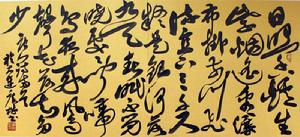 日照香炉生
紫烟遥看瀑
布挂前川飞
流直下三千尺
疑是银河落
九天春眠不觉
晓处处闻啼
鸟夜来风雨
声花落知多
少